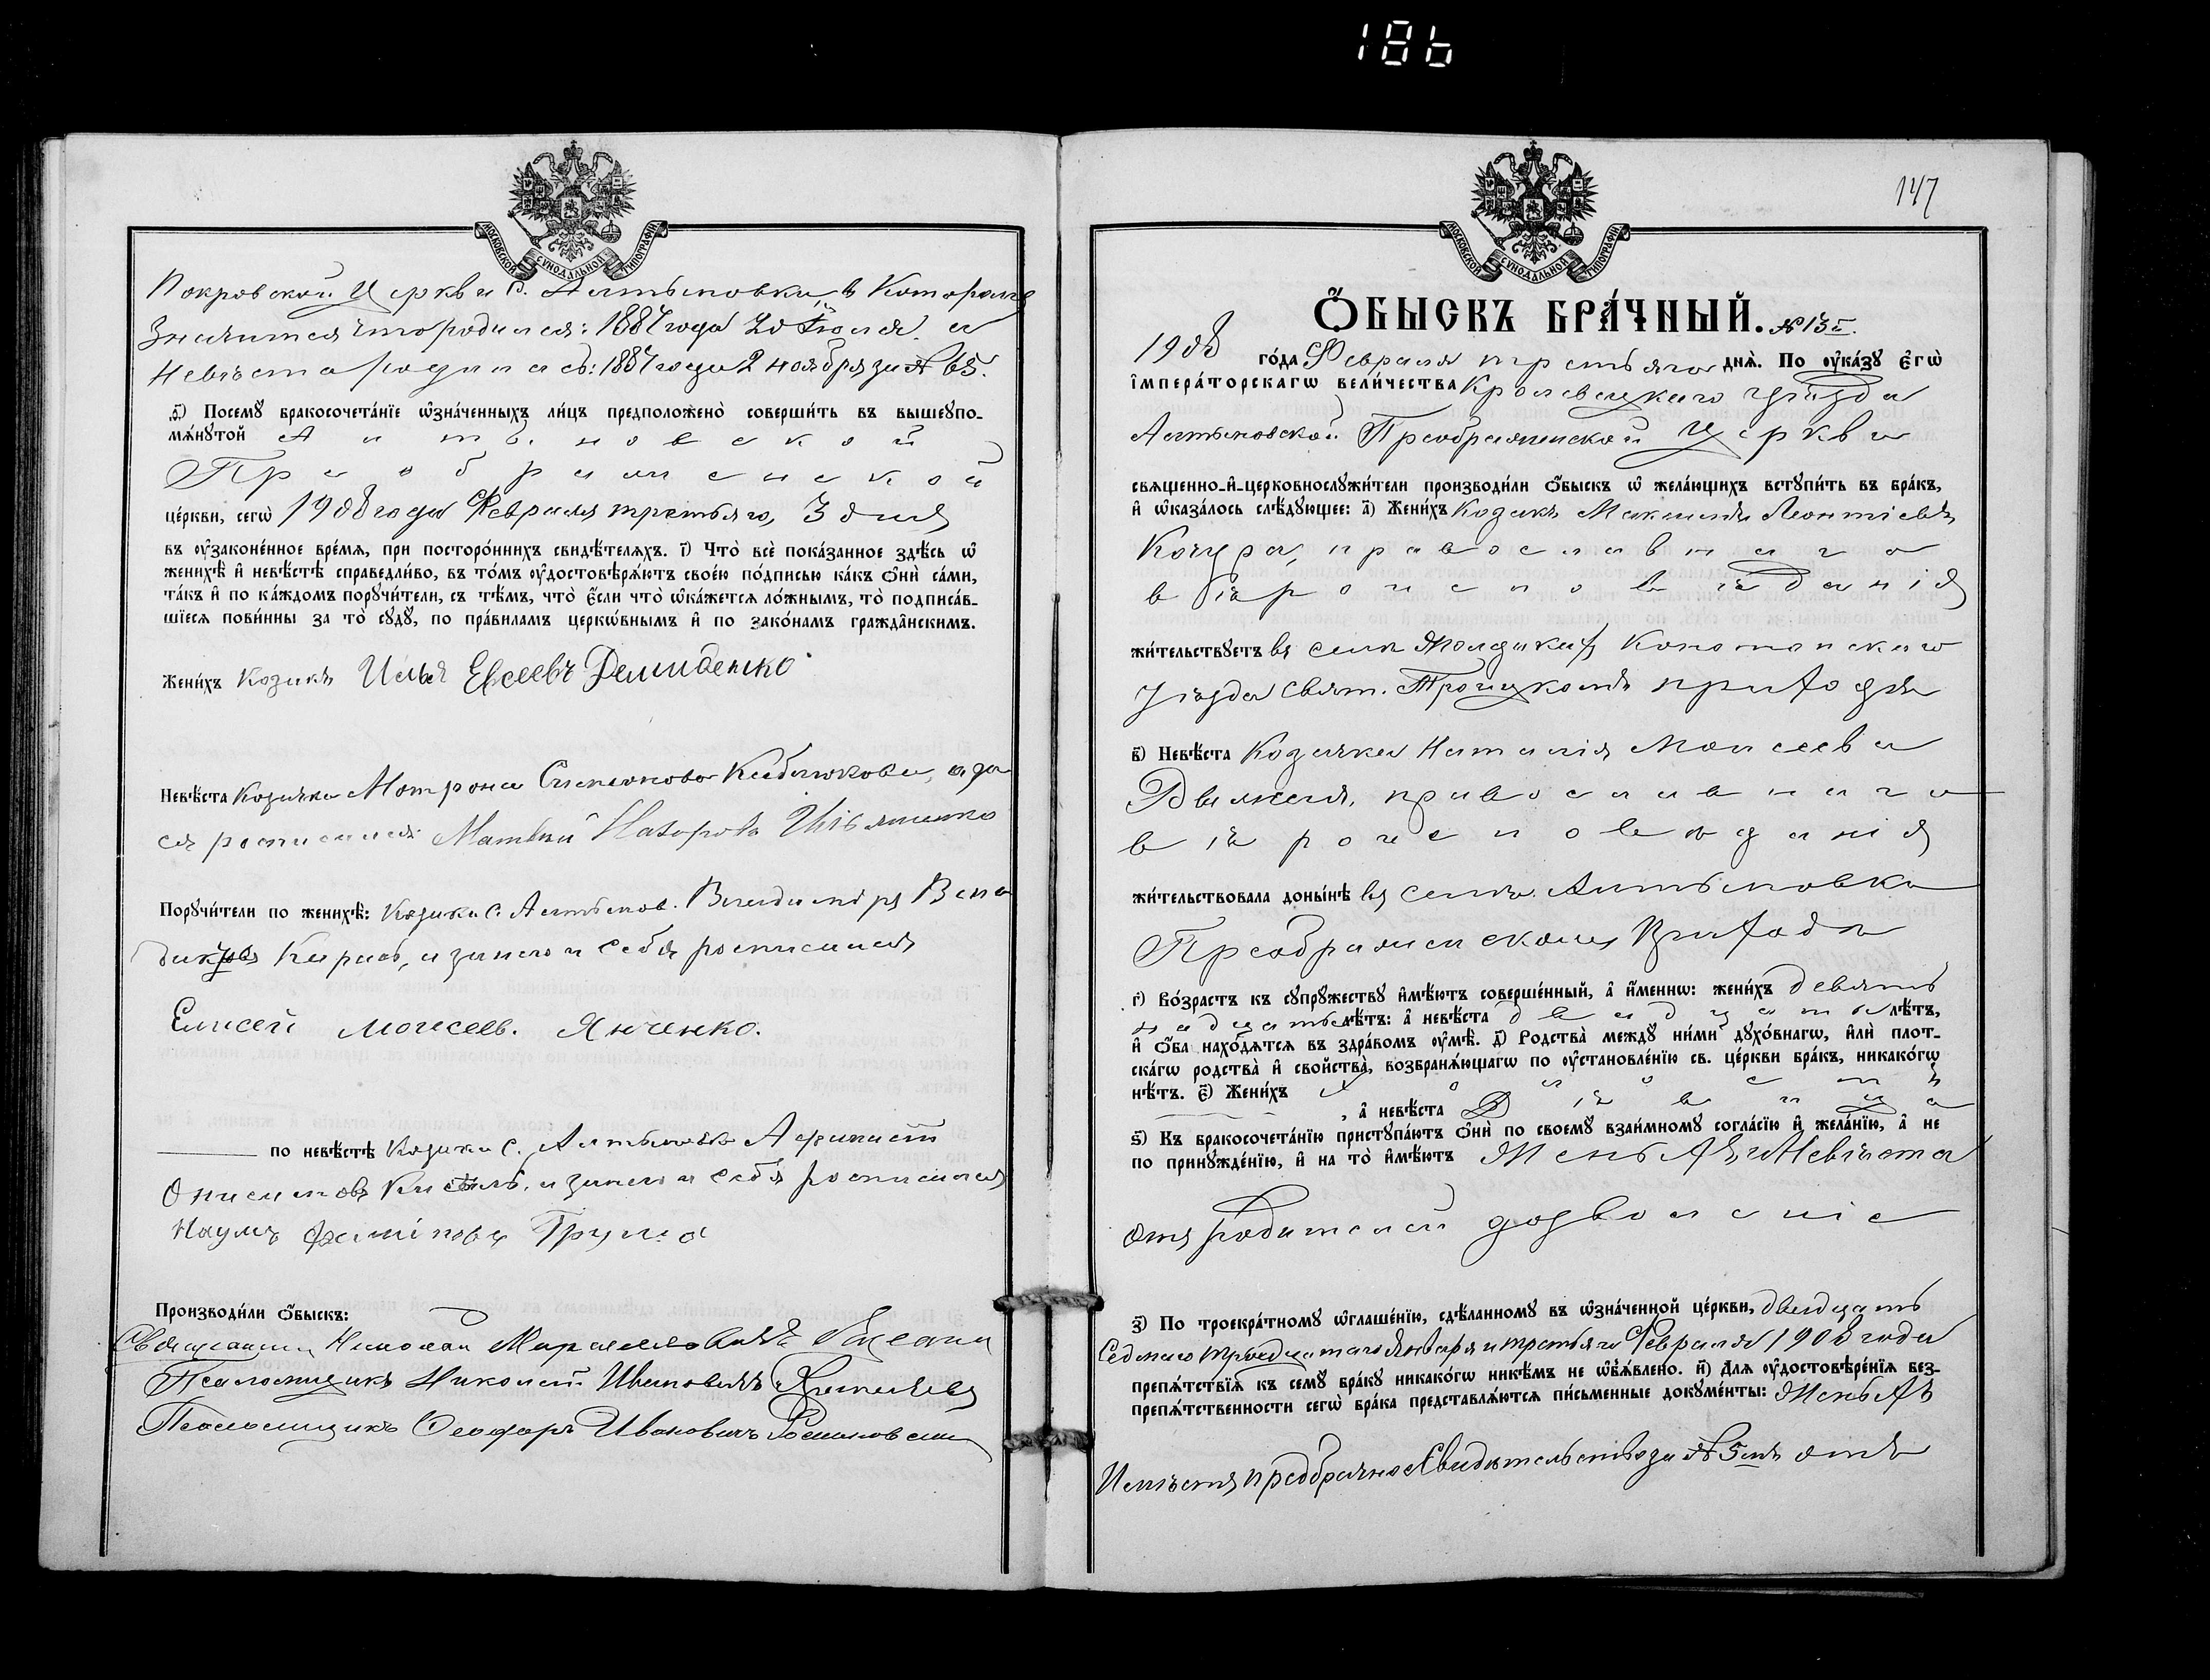 186
МОСКОВСКОЙ СѴНОДАЛЬНОЙ ТИПОГРАФІИ
Покровской Церкви с. Алтыновки, въ которомъ
значится что родился: 1887 года 20 Іюля, а
невѣста родилась: 1887 года 2 ноября за № 65.
ѳ҃) Посемꙋ бракосочета́нїе ѡ҆зна́ченныхъ ли́цъ предположено̀ соверши́ть въ вышеꙋпо-
мѧ́нꙋтой Алтыновской
Преображенской
це́ркви, сегѡ̀ 1908 года Февраля третьяго, 3 дня
въ ᲂу҆законе́нное вре́мѧ, при посторо́ннихъ свидѣ́телѧхъ. і҃) Что̀ всѐ пока́занное здѣ́сь ѡ҆
женихѣ̀ и҆ невѣ́стѣ справедли́во, въ то́мъ ᲂу҆достовѣрѧ́ютъ свое́ю по́дписью ка́къ ѻ҆нѝ са́ми,
та́къ и҆ по ка́ждомъ порꙋчи́тели, съ тѣ́мъ, что̀ є҆́сли что̀ ѡ҆ка́жетсѧ ло́жнымъ, то̀ подписа́в-
шїесѧ пови́нны за то̀ сꙋдꙋ̀, по пра́виламъ церкѡ́внымъ и҆ по зако́намъ гражда̑нскимъ.
Жени́хъ Козакъ Илья Евсеевъ Демиденко
Невѣ́ста Козачка Мотрона
ся росписался Матвѣй
Порꙋчи́тели по женихѣ̀: Козаки с. Алтынов. Владиміръ
Кирій, и за него и себя росписался
Елисей Моисеев. Янченко.
по невѣ́стѣ Козаки с. Алтыновки
и за него и себя росписался
Наумъ Филиповъ
Производи́ли ѻ҆́быскъ:
Священникъ Николай
Псаломщикъ Николай Ивановичъ
Псаломщикъ Ѳеодоръ Ивановичъ
147
МОСКОВСКОЙ СѴНОДАЛЬНОЙ ТИПОГРАФІИ
Ѻ҆́БЫСКЪ БРА́ЧНЫЙ. № 13й.
1908 го́да Февраля третьяго днѧ̀. По ᲂу҆ка́зꙋ є҆гѡ̀
і҆мпера́торскагѡ вели́чества Кролевецкаго уѣзда
Алтыновской Преображенской Церкви
свѧще́нно-и҆-церковнослꙋжи́тели производи́ли ѻ҆́быскъ ѡ҆ жела́ющихъ встꙋпи́ть въ бра́къ,
и҆ ѡ҆каза́лось слѣ́дꙋющее: а҃) Жени́хъ Козакъ Максимъ Леонтіевъ
Кочура, православнаго
вѣроисповѣданія
жи́тельствꙋетъ въ селѣ Конотопскаго
Уѣзда Свят. Троицкомъ приходѣ
в҃) Невѣ́ста Козачка Наталія Моисеева
православнаго
вѣроисповѣданія
жи́тельствовала доны́нѣ въ селѣ Алтыновкѣ
Преображенскомъ Приходѣ
г҃) Во́зрастъ къ сꙋпрꙋ́жествꙋ и҆мѣ́ютъ соверше́нный, а҆ и҆́меннѡ: жени́хъ девят
надцать лѣ́тъ: а҆ невѣ́ста двадцать лѣ́тъ,
и҆ ѻ҆́ба нахо́дѧтсѧ въ здра́вомъ ᲂу҆мѣ̀. д҃) Родства̀ междꙋ̀ ни́ми дꙋхо́внагѡ, и҆лѝ плот-
ска́гѡ родства̀ и҆ свойства̀, возбранѧ́ющагѡ по ᲂу҆становле́нїю св. це́ркви бра́къ, никако́гѡ
нѣ́тъ. є҃) Жени́хъ Холостъ
, а҆ невѣ́ста Дѣвица
ѕ҃) Къ бракосочета́нїю пристꙋпа́ютъ ѻ҆нѝ по своемꙋ̀ взаи́мномꙋ согла́сїю и҆ жела́нїю, а҆ не
по принꙋжде́нїю, и҆ на то̀ и҆мѣ́ютъ Женихъ и Невѣста
отъ родителей дозволеніе
з҃) По троекра́тномꙋ ѡ҆глаше́нїю, сдѣ́ланномꙋ въ ѡ҆зна́ченной це́ркви, двадцать
седмаго тридцатаго Января и третьяго Февраля 1908 года
препѧ́тствїѧ къ семꙋ̀ бра́кꙋ никако́гѡ никѣ́мъ не ѡ҆б̾ѧ́влено. и҃) Длѧ ᲂу҆достовѣре́нїѧ без-
препѧ́тственности сегѡ̀ бра́ка представлѧ́ютсѧ пи́сьменные докꙋме́нты: Женихъ
за № 5мъ отъ